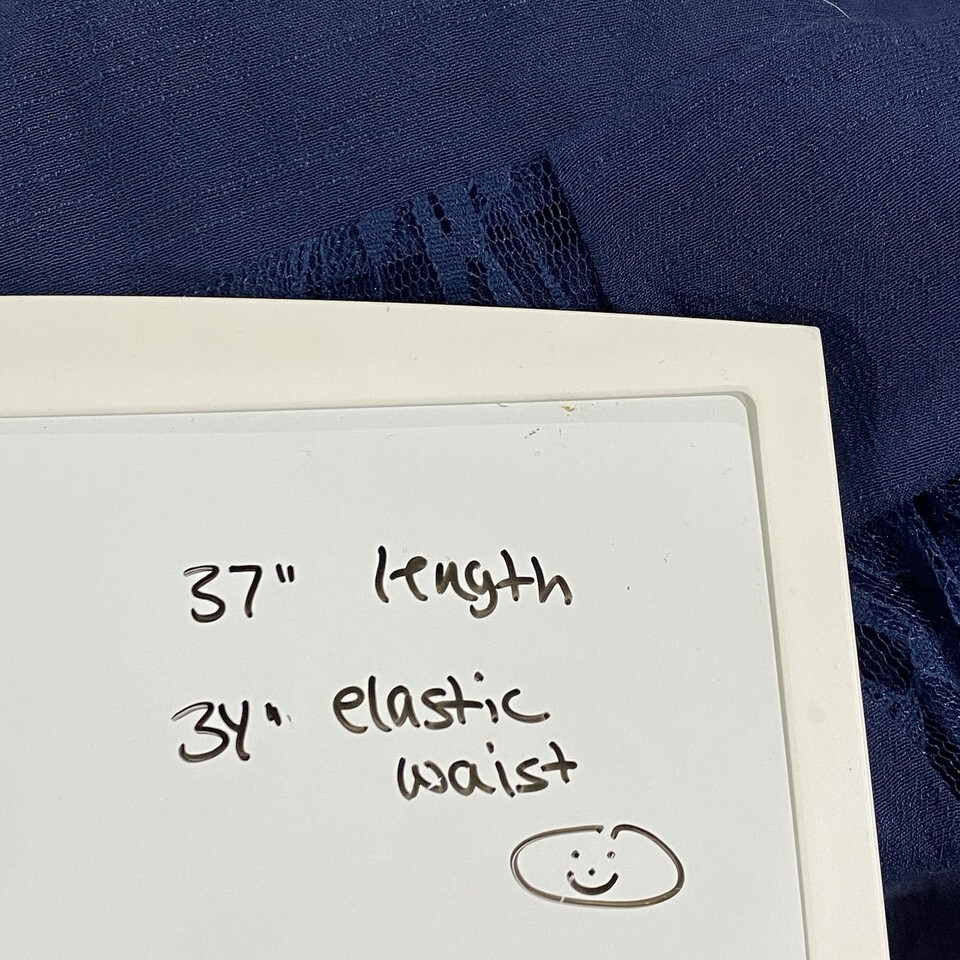 37" length
34" elastic
waist